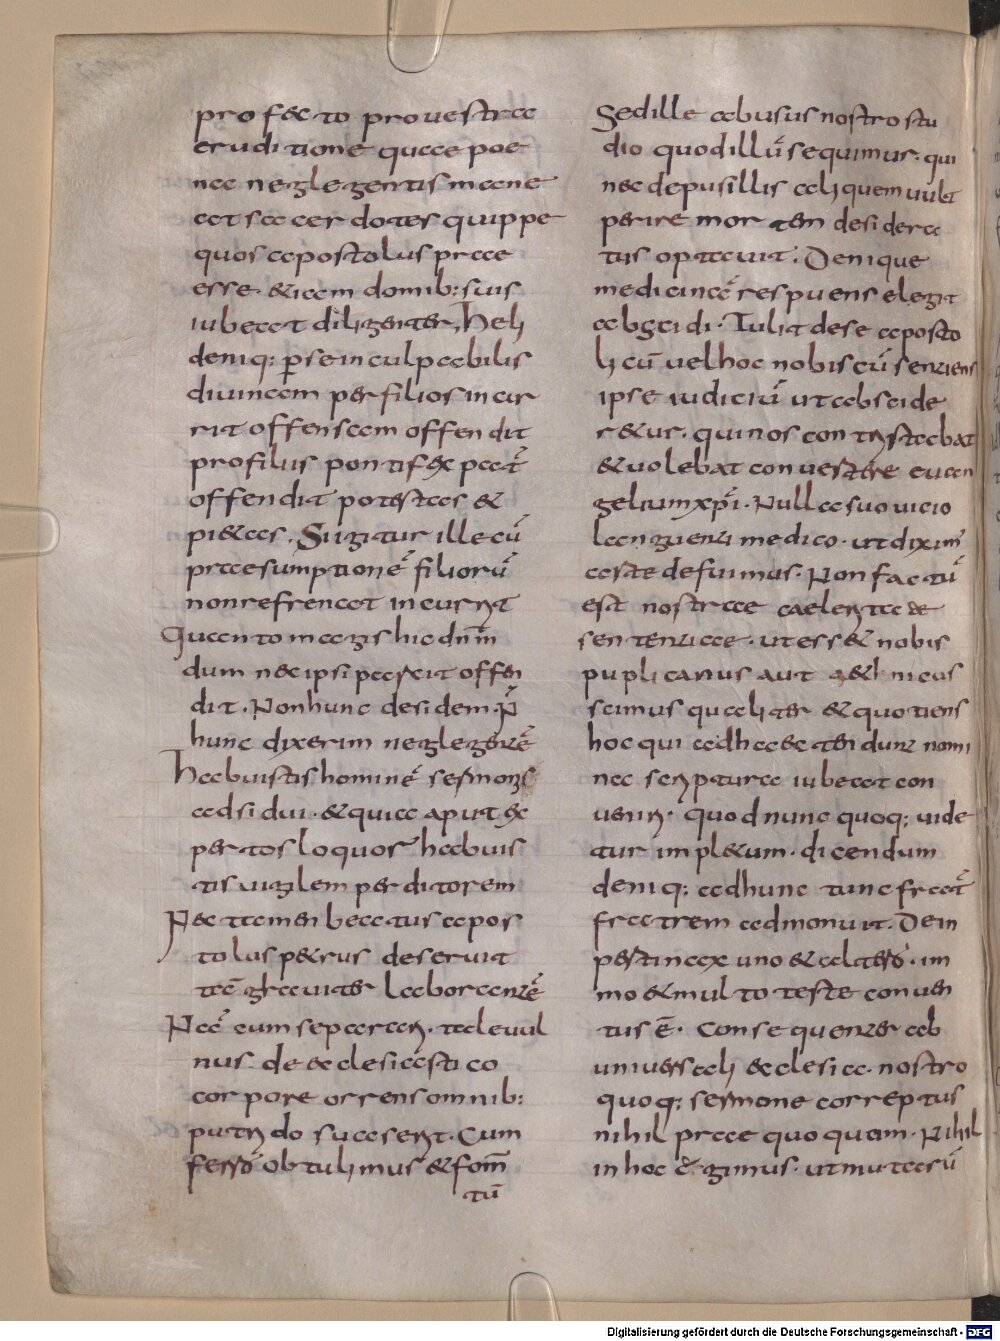 profecto pro uestra
eruditione quae poe
na neglegentis mane
at sacerdotes quippe
quos apostolus prae
esse· & iam domib: suis
iubeat diligenter, heli
deniq: p̱se inculpabilis
diuinam per filios incur
rit offensam offendit
profiliis pontifex pat̄
offendit potestas &
pi&as. Si igitur ille cū
praesumptionē filiorū
non refrenat incurrit
quanto magis hic dn̄m
dum nec ipsi parcit offen
dit. Non hunc desidem· Ñ
hunc dixerim neglegentē
habuistis hominē sermonis
adsidui· & quia aput ex
pertos loquor habuis
tis uigilem perditorem
Nec tamen beatus apos
tolus petrus deseruit
tā grauiter laborantē
Nā cum separari· tale uul
nus de ecclesiastico
corpore orrens omnib:
putrido suaserit. Cum
fersō obtulimus & fom̄
tū
Sed ille abusus nostro stu
dio quod illū sequimur· qui
nec de pusillis aliquem uult
perire mortem desidera
tus optauit. Denique
medicinā respuens elegit
abscidi· Tulit de se aposto
li cū uel hoc nobiscū sentiens
ipse iudiciū ut abscide
retur· qui nos contristabat
& uolebat conuertere euan
gelium xp̄i· Nulla suo uicio
languenti medico· ut diximꝰ
arte defuimus· Non fac tū
est nostrae caelentia de
sententiae· ut ess& nobis
puplicanus aut &hnicus
scimus qualiter & quotiens
hoc qui adhaec tendunt nomi
na scriptura iubeat con
ueniri· quod nunc quoq: uide
tur impletum· dicendum
deniq: adhunc tunc fraat̄
fratrem admonuit. Dein
pertinax uno & altero· im
mo & multo teste conuen
tus ē· Consequenter ab
uniuersali ecclesia· nostro
quoq: sermone correptus
nihil prae quoquam· Nihil
in hoc egimus· ut mutaasū